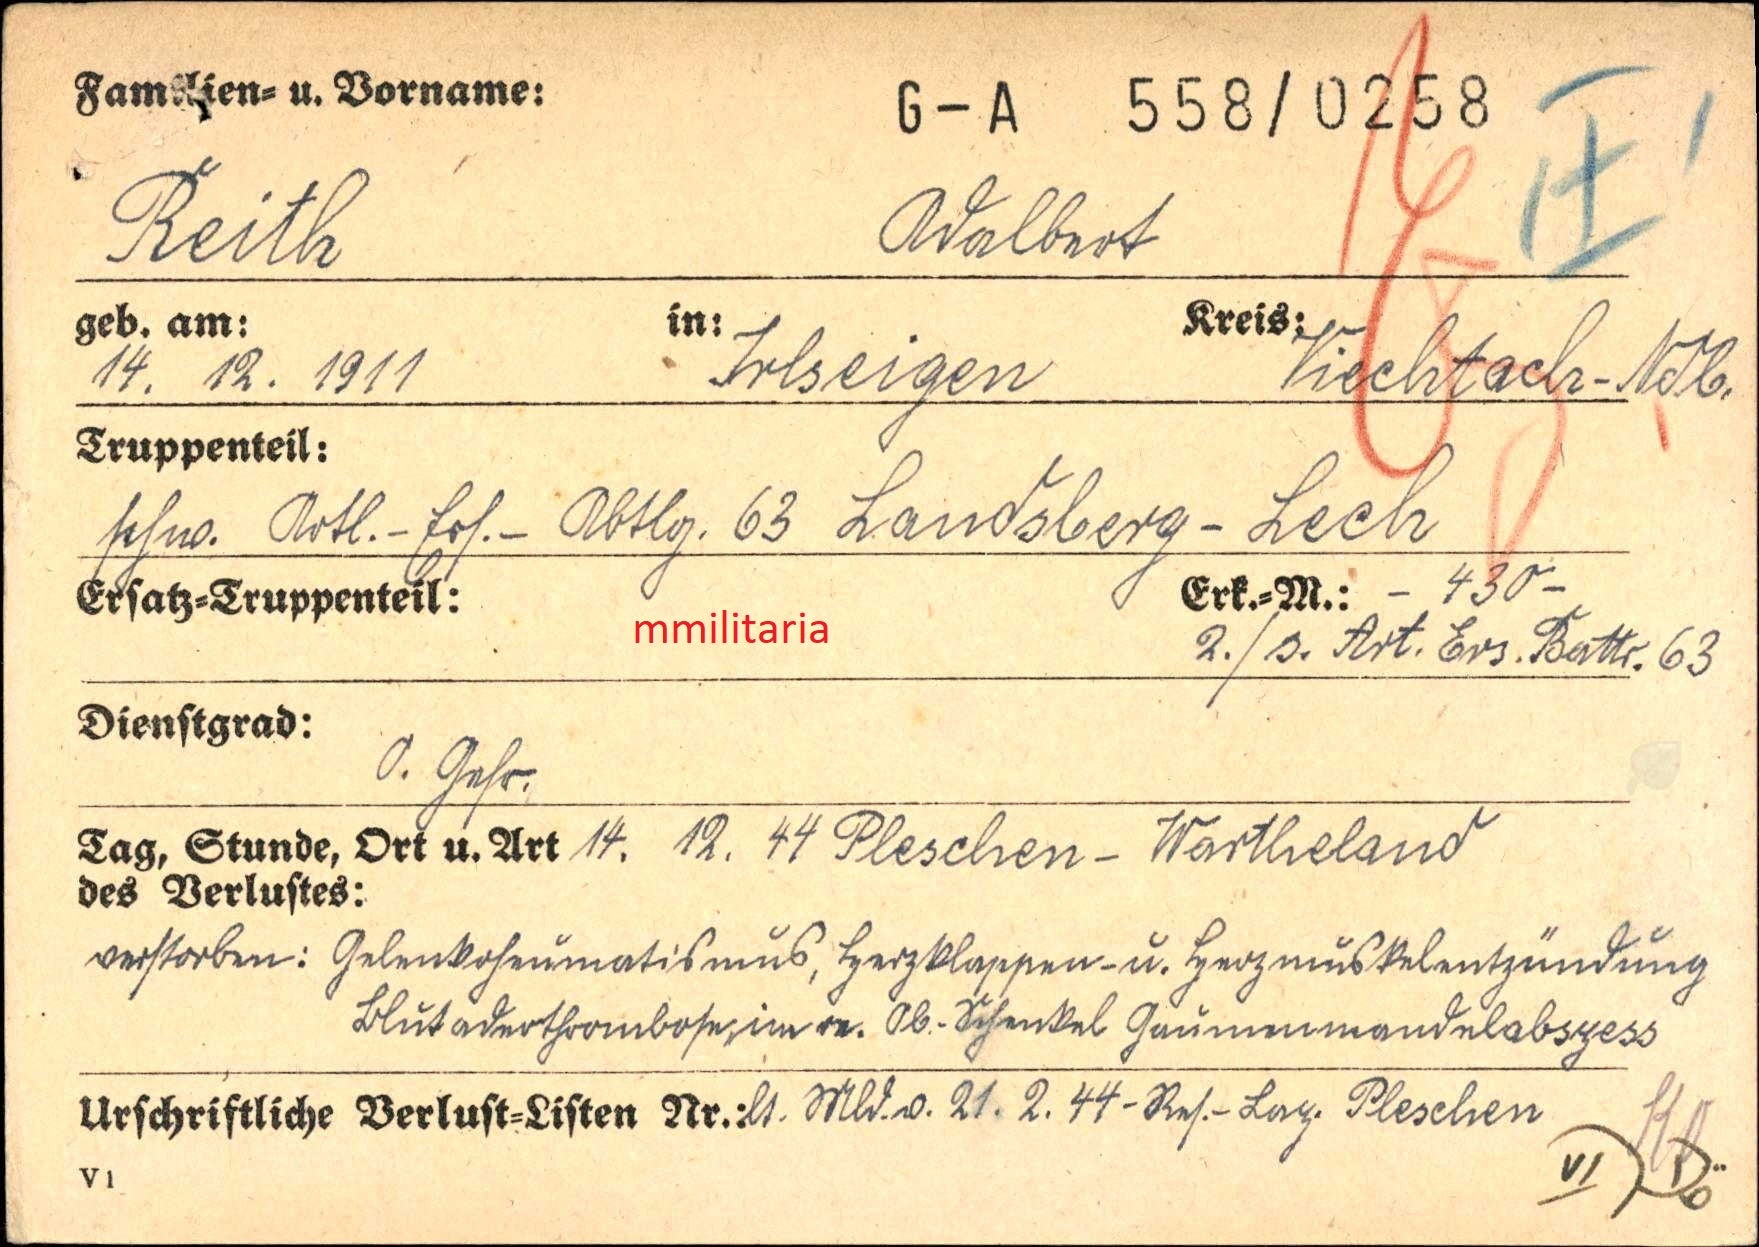 Familien- u. Vorname:
G-A 558/0258
Reith Adalbert
II
geb. am: in: Kreis:
14. 12. 1911 Irlseigen Viechtach-Ndb.
Truppenteil:
schw. Artl.-Ers.-Abtlg. 63 Landsberg-Lech
Ersatz-Truppenteil: Erk.-M.: - 430 -
mmilitaria
2./s. Art. Ers. Battr. 63
Dienstgrad:
O. Gefr.
Tag, Stunde, Ort u. Art 14. 12. 44 Pleschen - Wartheland
des Verlustes:
verstorben: Gelenkrheumatismus, Herzklappen- u. Herzmuskelentzündung
Blutaderthrombose, im re. Ob.-Schenkel Gaumenmandelabszess
Urschriftliche Verlust-Listen Nr.: lt. Mld. v. 21. 2. 44 - Res.-Laz. Pleschen
V 1
VI